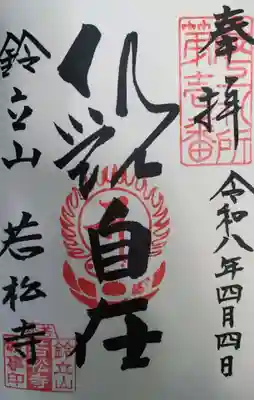 奉拝
第壱番
令和八年四月四日
自在
鈴立山 若松寺
鈴立山
若松寺